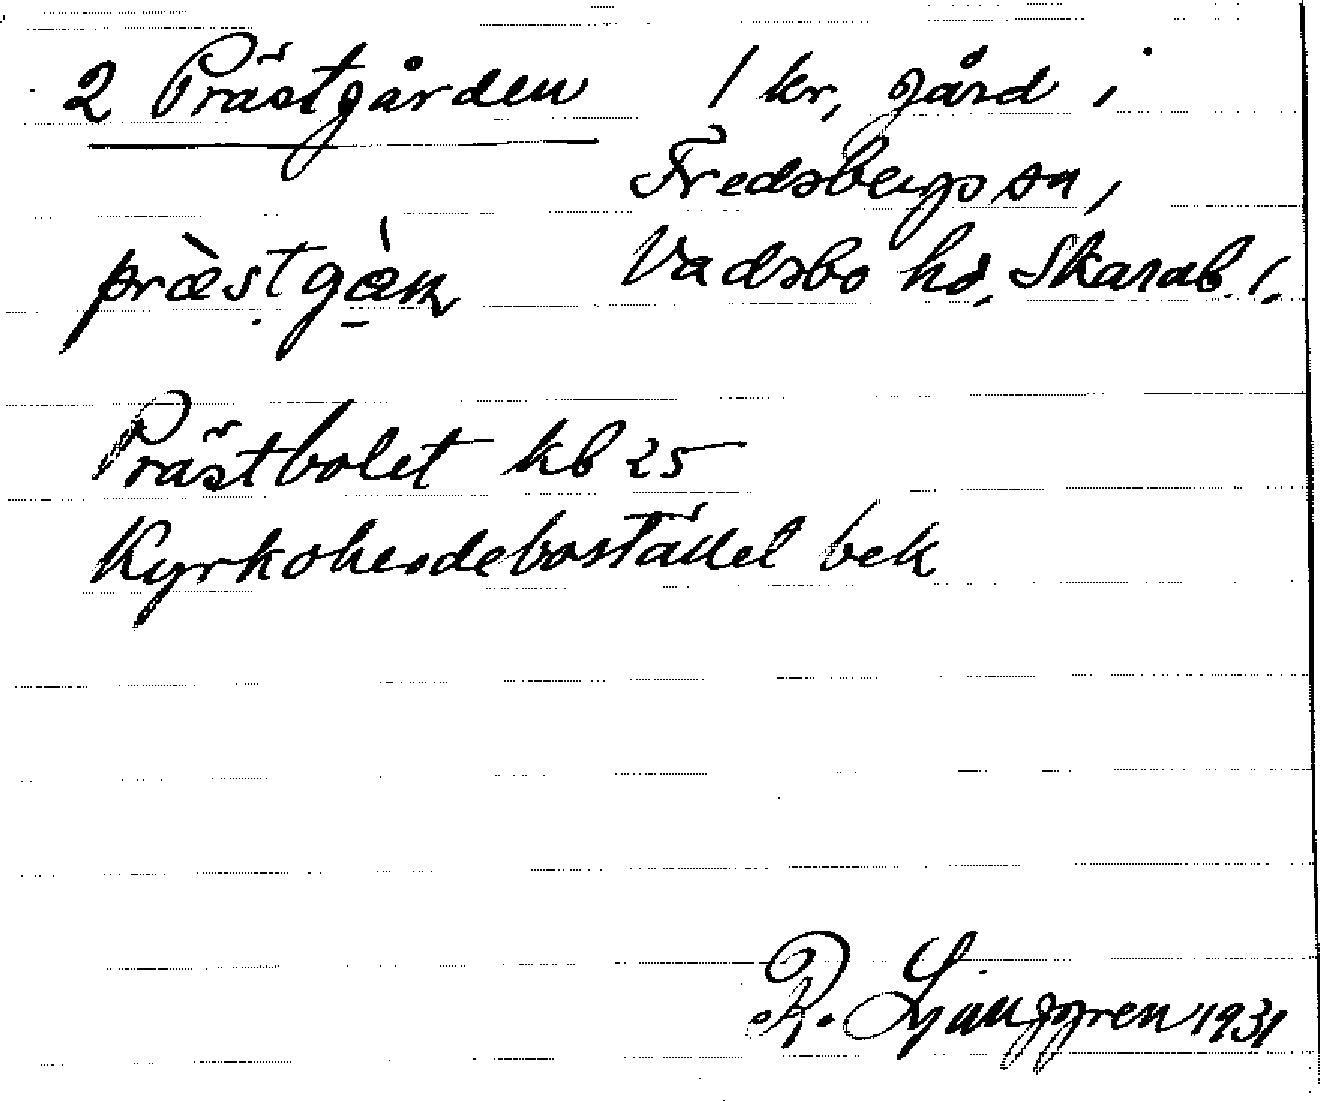 2 Prästgården 1 kr, gård i
Fredsbergs sn,
Vadsbo hd, Skarab. l.
præ̀stgàn
Prästbolet kb 25
Kyrkoherdebostället bek
R. Ljunggren 1931